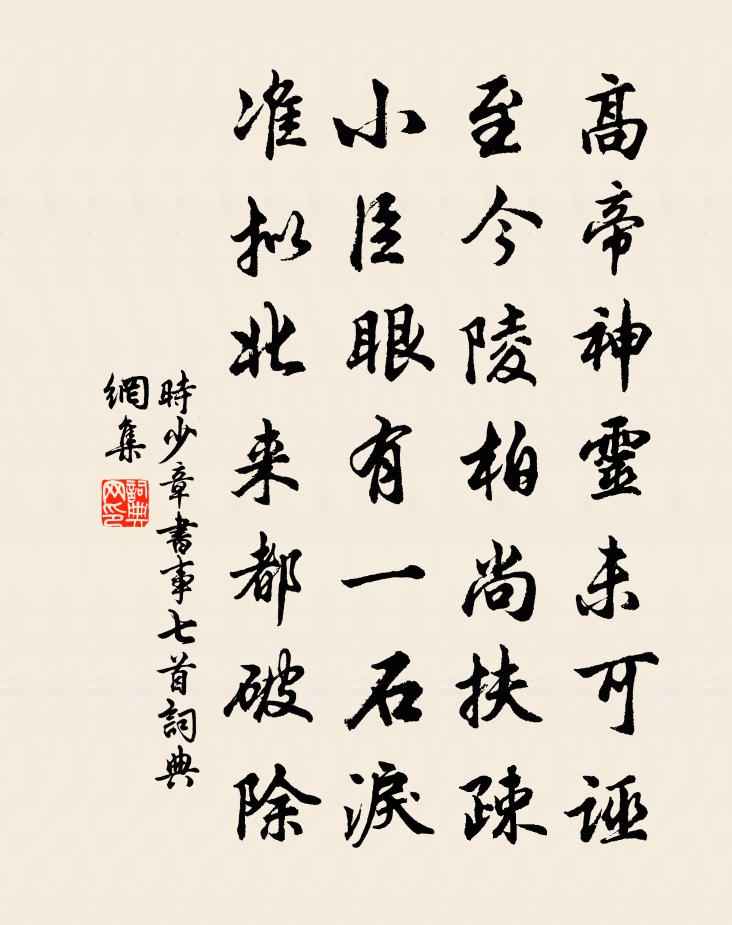 高帝神靈未可誣
至今陵柏尚扶疎
小臣眼有一石淚
准拟北来都破除
時少章書事七首詞典
網集
詞典网印